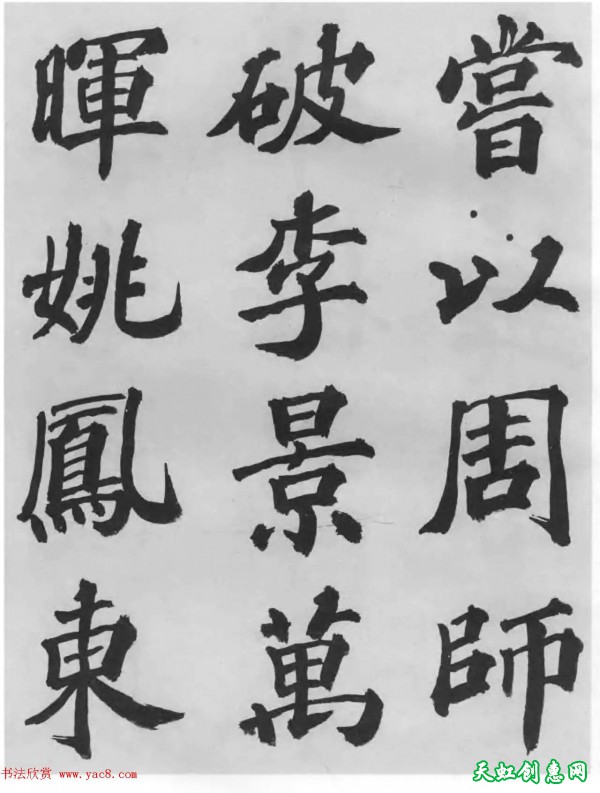 嘗以周師
破李景萬
暉姚鳳東
书法欣赏 www.yac8.com
天虹创惠网